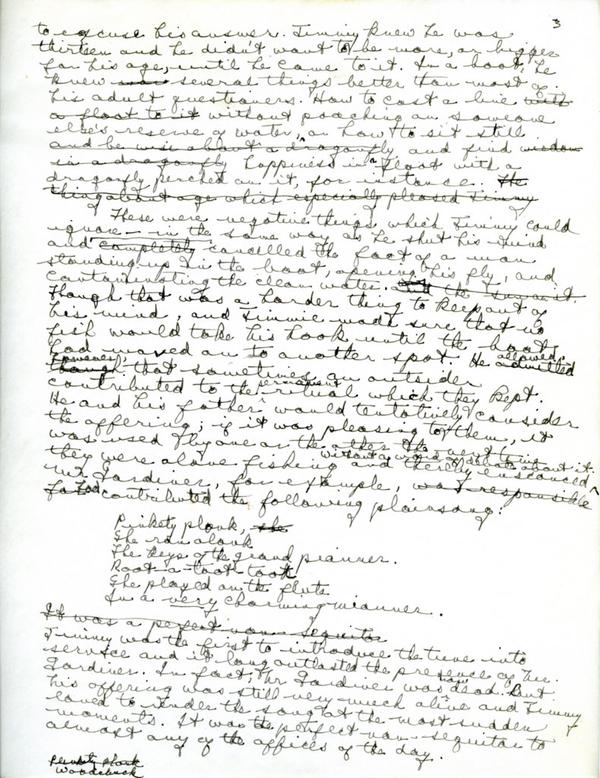 3
to excuse his answer. Timmy knew he was
thirteen and he didn't want to be more, or bigger
for his age, until he came to it. In a boat, he
knew several things better than most of
his adult questioners. How to cast a line with
a float to it without poaching on someone
else's reserve of water, or how to sit still
and be wise about a dragonfly, and find wisdom
in a dragonfly happiness in a float with a
dragonfly perched on it, for instance. The
thing about age which especially pleased Timmy
These were negative things which Timmy could
ignore – in the same way as he shut his mind
and completely cancelled the fact of a man
standing up in the boat, opening his fly, and
contaminating the clean water.
though that was a harder thing to keep out of
his mind, and Timmie made sure that no
fish would take his hook until the boat
had moved on to another spot. He admitted allowed,
though however, that sometimes an outsider
contributed to the permanent ritual which they kept.
He and his father would tentatively consider
the offering; if it was pleasing to them, it
was used by one or the other the next time
they were alone fishing and thereby ensconced without a word of debate about it.
Mr. Gardiner, for example, was responsible
for had contributed the following plainsong:
Pinkety plonk, she
She ran alonk
The keys of the grand pianner.
Root-a-toot toot
She played on the flute
In a very charming manner.
It was a perfect non-sequitur
Timmy was the first to introduce the tune into
service and it long outlasted the presence of Mr.
Gardiner. In fact, Mr Gardiner was now dead. But
his offering was still very much alive and Timmy
loved to render the song at the most sudden
moments. It was the perfect non-sequitur to
almost any of the offices of the day.
Plinkety plonk
Woodchuck